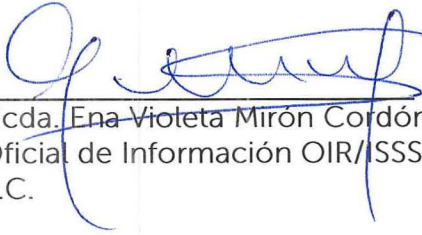 cda. Ena Violeta Mirón Cordón
Oficial de Información OIR/ISSS
.C.